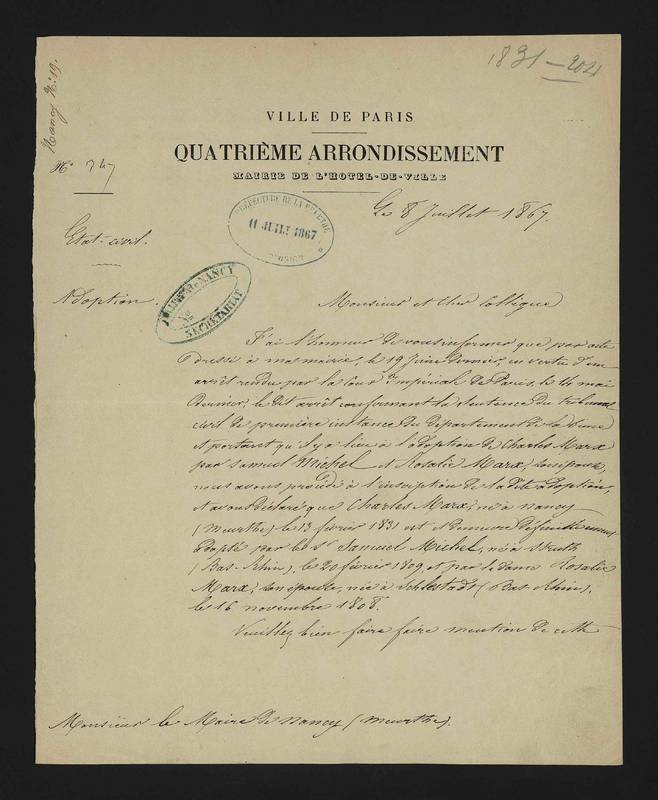 1831 - 204
Nancy N° 19.
VILLE DE PARIS
QUATRIÈME ARRONDISSEMENT
MAIRIE DE L'HOTEL-DE-VILLE
N° 747
Le 8 Juillet 1867.
PRÉFECTURE DE LA MEURTHE
11 JUILT 1867
DIVISION
Etat-civil.
MAIRIE DE NANCY
SECRÉTARIAT
Adoption.
Monsieur et Cher Collègue
J'ai l'honneur de vous informer que par acte
dressé à ma mairie, le 19 Juin dernier, en vertu d'un
arrêt rendu par la Cour Impériale de Paris, le 14 mai
dernier, le dit arrêt confirmant la sentence du tribunal
civil de première instance du département de la Seine
et portant qu'il y a lieu à l'adoption de Charles Marx
par Samuel Michel et Rosalie Marx, son épouse,
nous avons procédé à l'inscription de la dite adoption,
et avons déclaré que Charles Marx, né à Nancy
(Meurthe) le 13 février 1831 est et demeure définitivement
adopté par le Sr Samuel Michel, né à Struth
(Bas-Rhin), le 20 février 1809, et par la dame Rosalie
Marx, son épouse, née à Schlestadt (Bas Rhin),
le 16 novembre 1808.
Veuillez bien faire faire mention de cette
Monsieur le Maire de Nancy (Meurthe).